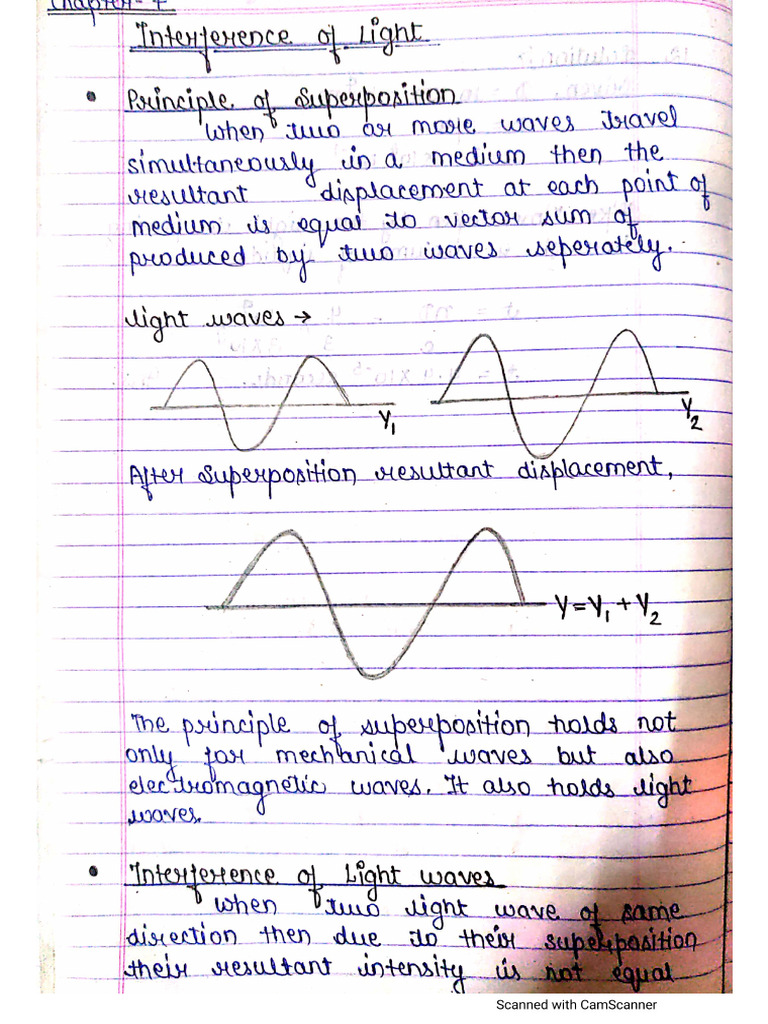 Chapter-7
Interference of Light
• Principle of Superposition
When two or more waves travel
simultaneously in a medium then the
resultant displacement at each point of
medium is equal to vector sum of
produced by two waves seperately.
Light waves →
Y1
Y2
After superposition resultant displacement,
Y=Y1+Y2
The principle of superposition holds not
only for mechanical waves but also
electromagnetic waves. It also holds light
waves.
• Interference of Light waves
When two light wave of same
direction then due to their superposition
their resultant intensity is not equal
Scanned with CamScanner